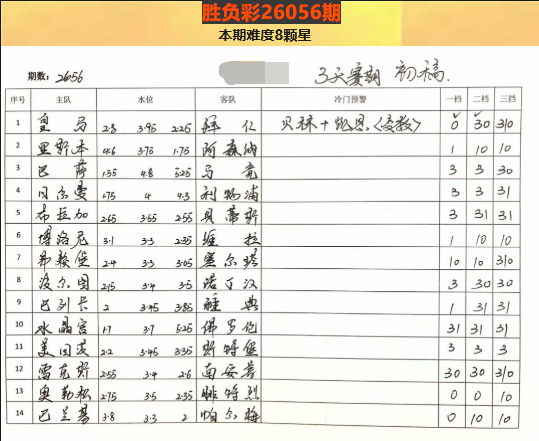 胜负彩26056期
本期难度8颗星
期数: 26056 3天赛期 初稿.
序号 主队 水位 客队 冷门预警 一档 二档 三档
1 皇马 2.8 3.95 2.25 拜仁 0 30 310
2 里斯本 4.6 3.75 1.75 阿森纳 1 10 10
3 巴萨 1.55 4.8 5.25 马竞 3 3 30
4 贝尔曼 1.75 4 4.3 利物浦 3 3 31
5 布拉加 2.65 3.55 2.55 贝蒂斯 3 31 31
6 博洛尼 3.1 3.3 2.35 维拉 1 10 10
7 弗赖堡 2.4 3.3 3.05 塞尔塔 10 10 310
8 波尔图 2.15 3.4 3.5 诺丁汉 3 30 30
9 巴列卡 2 3.45 3.85 雅典 1 31 31
10 水晶宫 1.7 3.7 5.25 佛罗伦 31 31 31
11 美因茨 2.2 3.45 3.35 斯特堡 3 3 3
12 雷克斯 2.55 3.4 2.6 南安普 30 30 310
13 奥勒松 2.75 3.5 2.35 腓特烈 0 0 10
14 巴兰基 3.8 3.3 2 帕尔梅 0 10 10